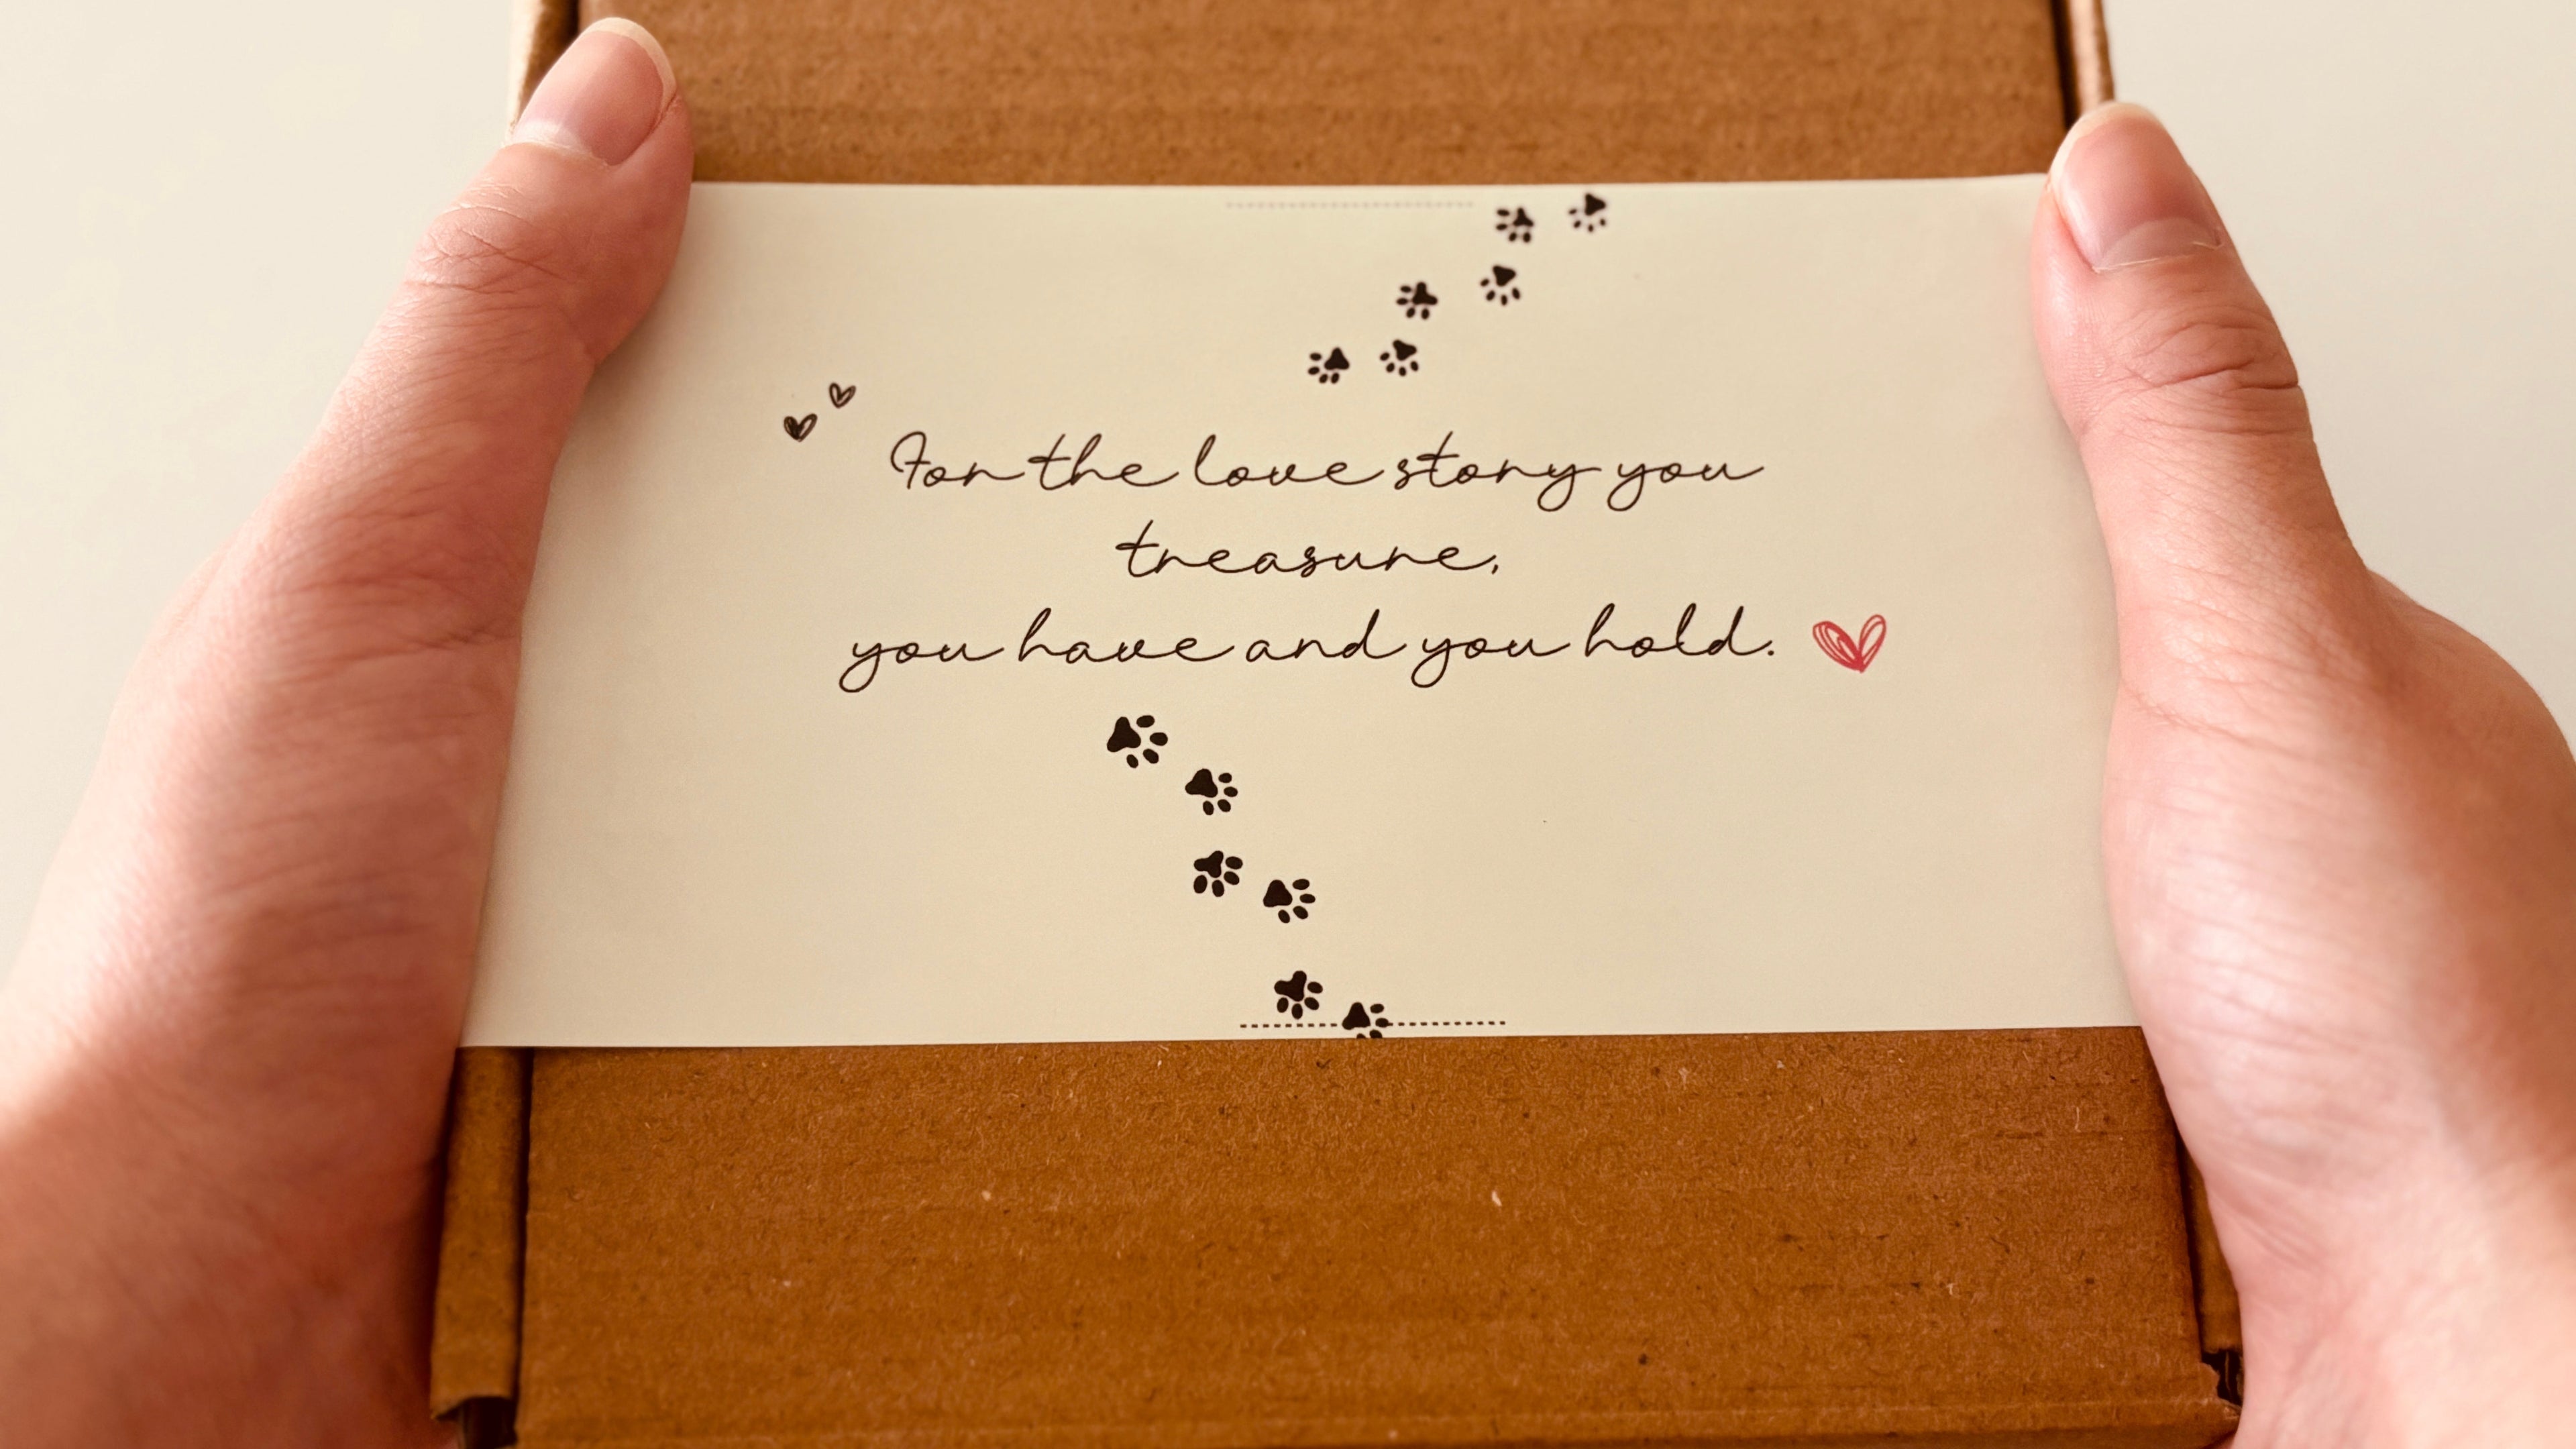 For the love story you
treasure,
you have and you hold.